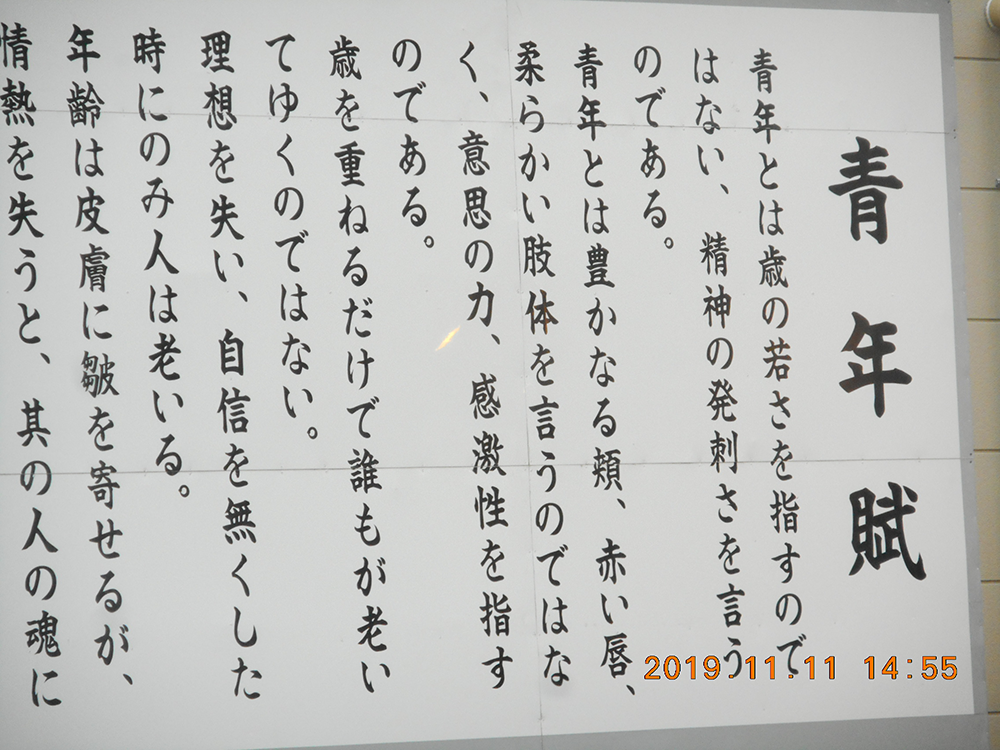 青年賦
青年とは歳の若さを指すので
はない、精神の発刺さを言う
のである。
青年とは豊かなる頬、赤い唇、
柔らかい肢体を言うのではな
く、意思の力、感激性を指す
のである。
歳を重ねるだけで誰もが老い
てゆくのではない。
理想を失い、自信を無くした
時にのみ人は老いる。
年齢は皮膚に皺を寄せるが、
情熱を失うと、其の人の魂に
2019.11.11 14:55